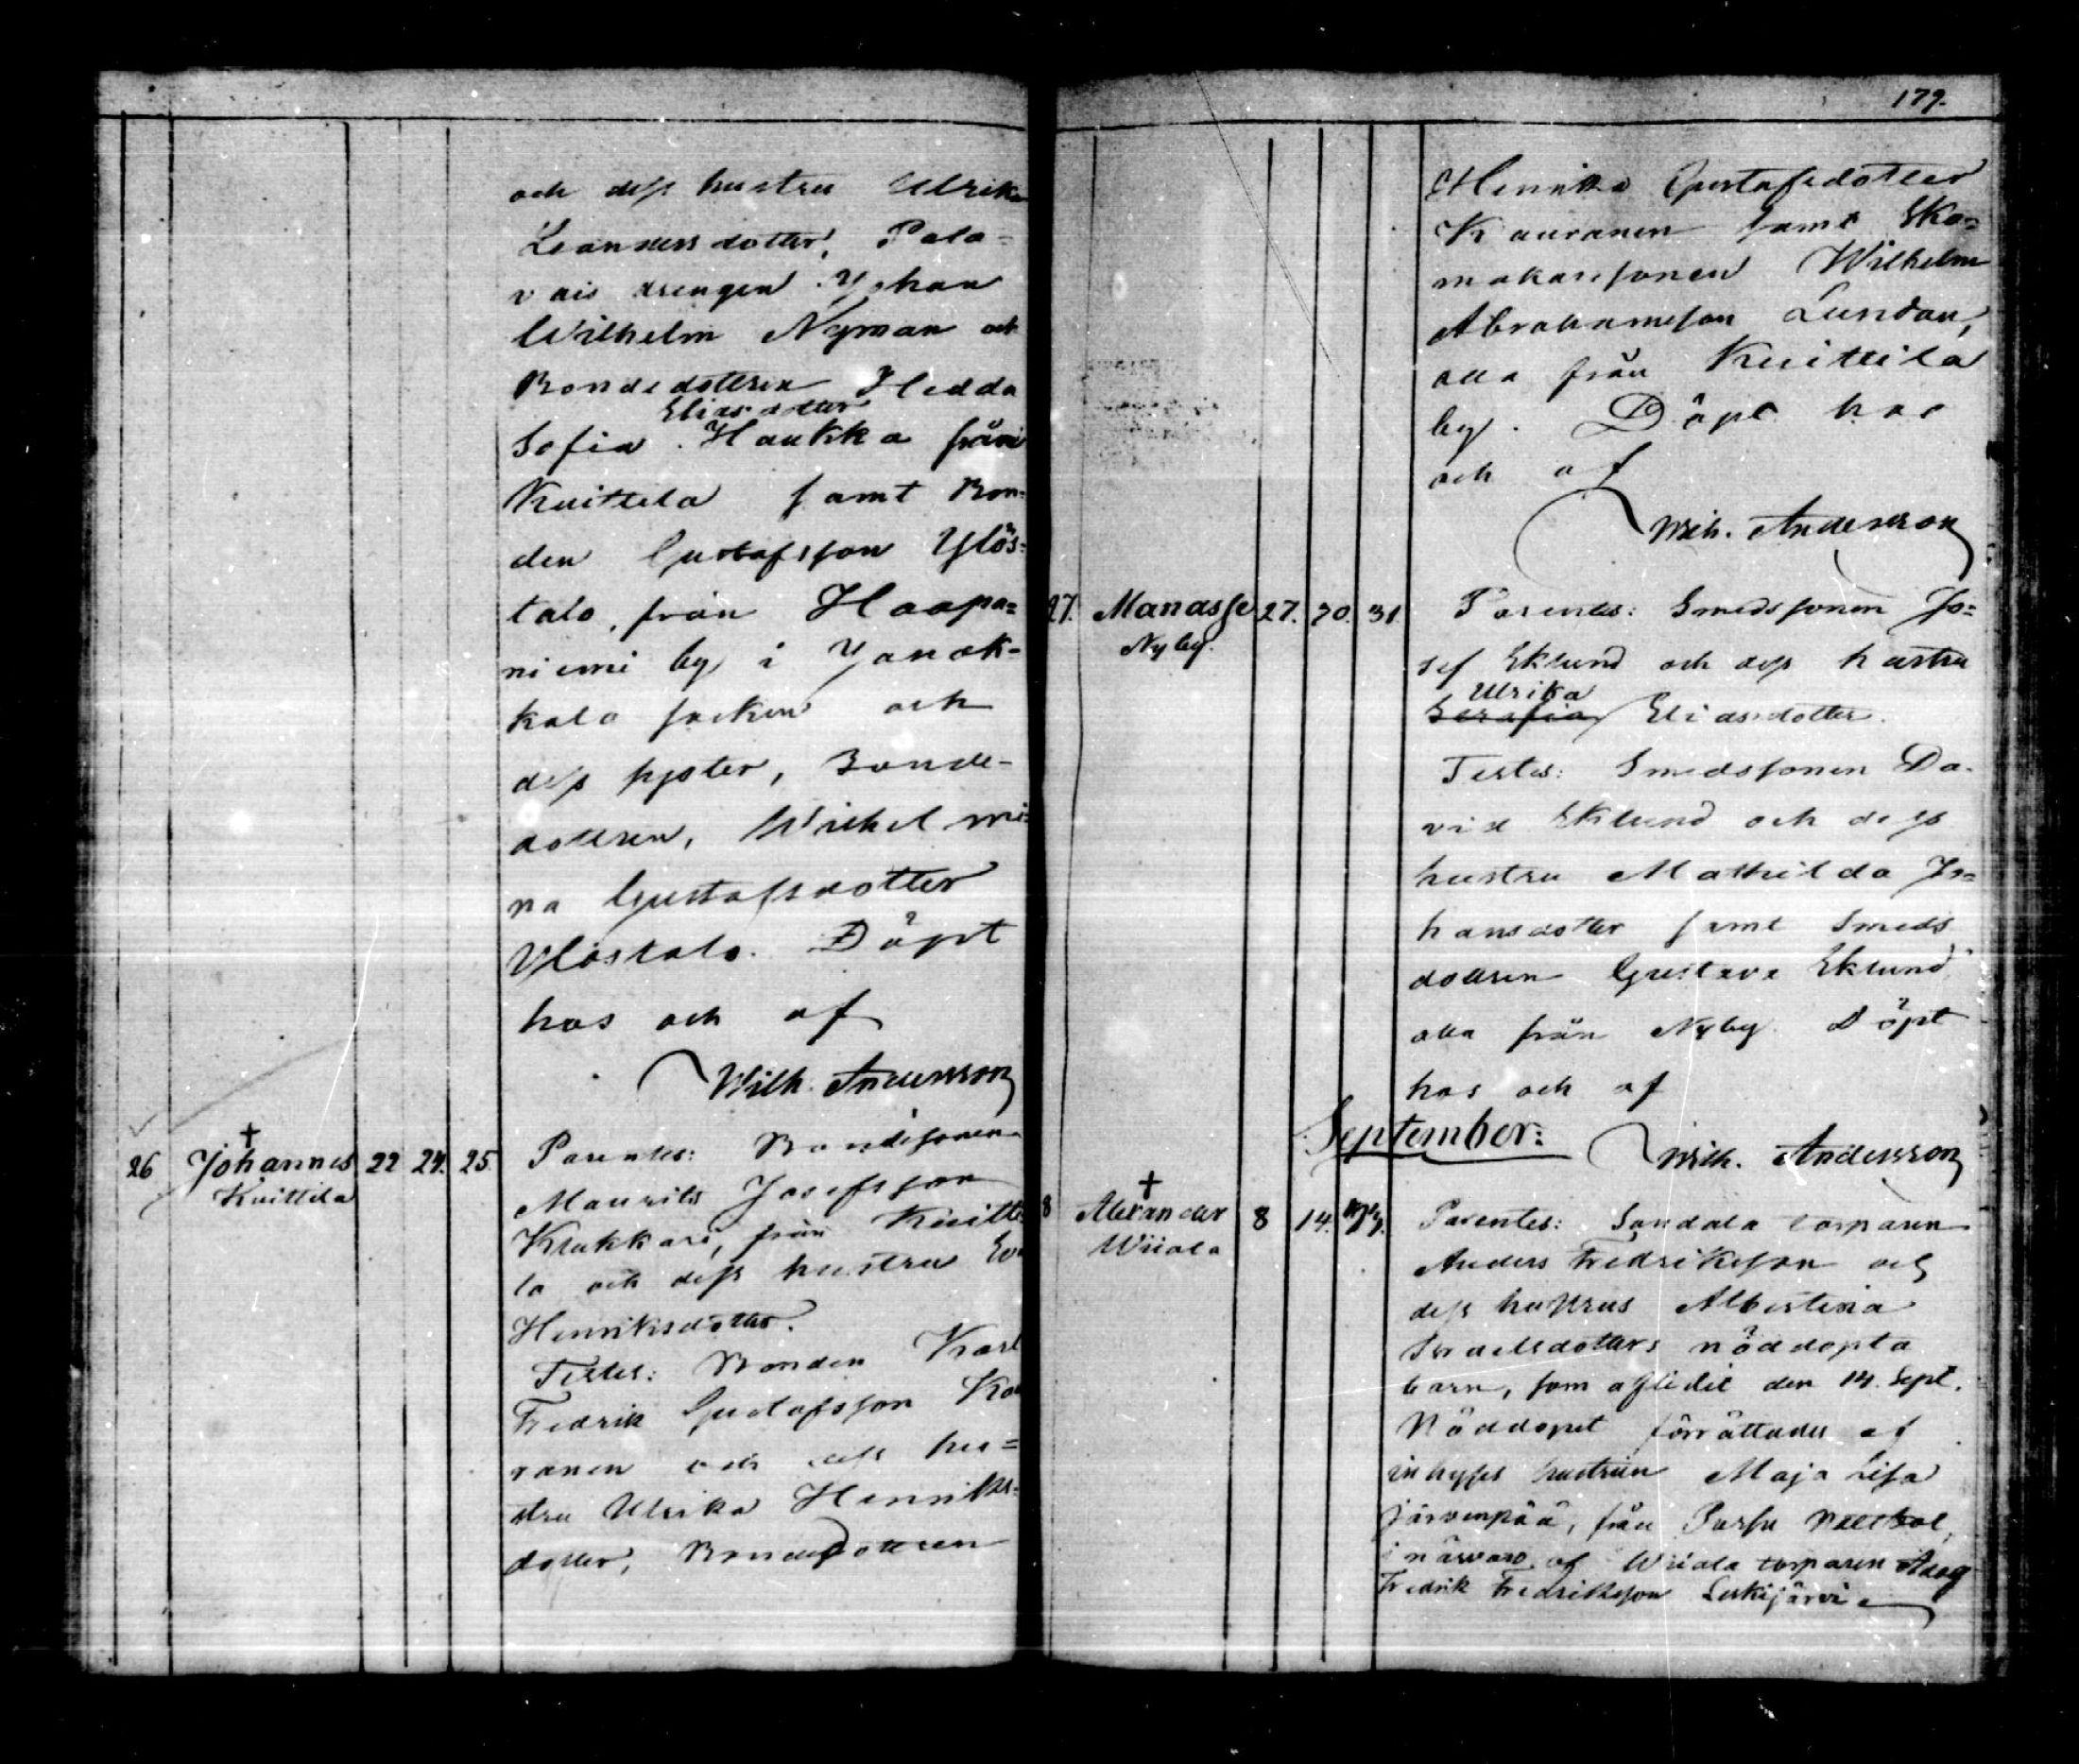 och dess hustru Ulrika
Leandersdotter, Palo=
vais drengen Johan
Wilhelm Nyman och
Bondedottren Hedda
Eliasdotter
Sofia Haukka från
Kuittila samt Bon=
den Gustafsson Ylös=
talo, från Haapa=
niemi by i Janak-
kala socken och
dess syster, Bonde-
dottren, Wilhelmi=
na Gustafsdotter
Ylöstalo. Döpt
hos och af
Wilh. Andersson
26 Johannes 22 24. 25. Parentes: Bondesonen
Kuittila
Maurits Josefsson
Klukkari, från Kuitti
la och dess hustru Eva
Henriksdotter.
Testes: Bonden Karl
Fredrik Gustafsson Kau
ranen och dess hu=
stru Ulrika Henriks=
dotter, Bondedottren
179.
Henrika Gustafsdotter
Kauranen samt Sko=
makaresonen Wilhelm
Abrahamsson Lundan,
alla från Kuittila
by. Döpt hos
och af
Wilh. Andersson
27. Manasse 27. 30. 31. Parentes: Smedssonen Jo=
Nyby.
sef Eklund och dess hustru
Ulrika
Serafia Eliasdotter.
Testes: Smedssonen Da-
vid Eklund och dess
hustru Mathilda Jo=
hansdotter samt Smeds
dottren Gustava Eklund
alla från Nyby. Döpt
hos och af
September: Wilh. Andersson
8 Alexander 8 14. Parentes: Sandala torparen
Wiiala
Anders Fredriksson och
dess hustrus Albertina
Israelsdotters nöddöpta
barn, som aflidit den 14. Sept.
Nöddopet förrättades af
inhyses hustrun Maja Lisa
Järvenpää, från
i närvaro af Wiiala torparen
Fredrik Fredriksson Leskijärvi